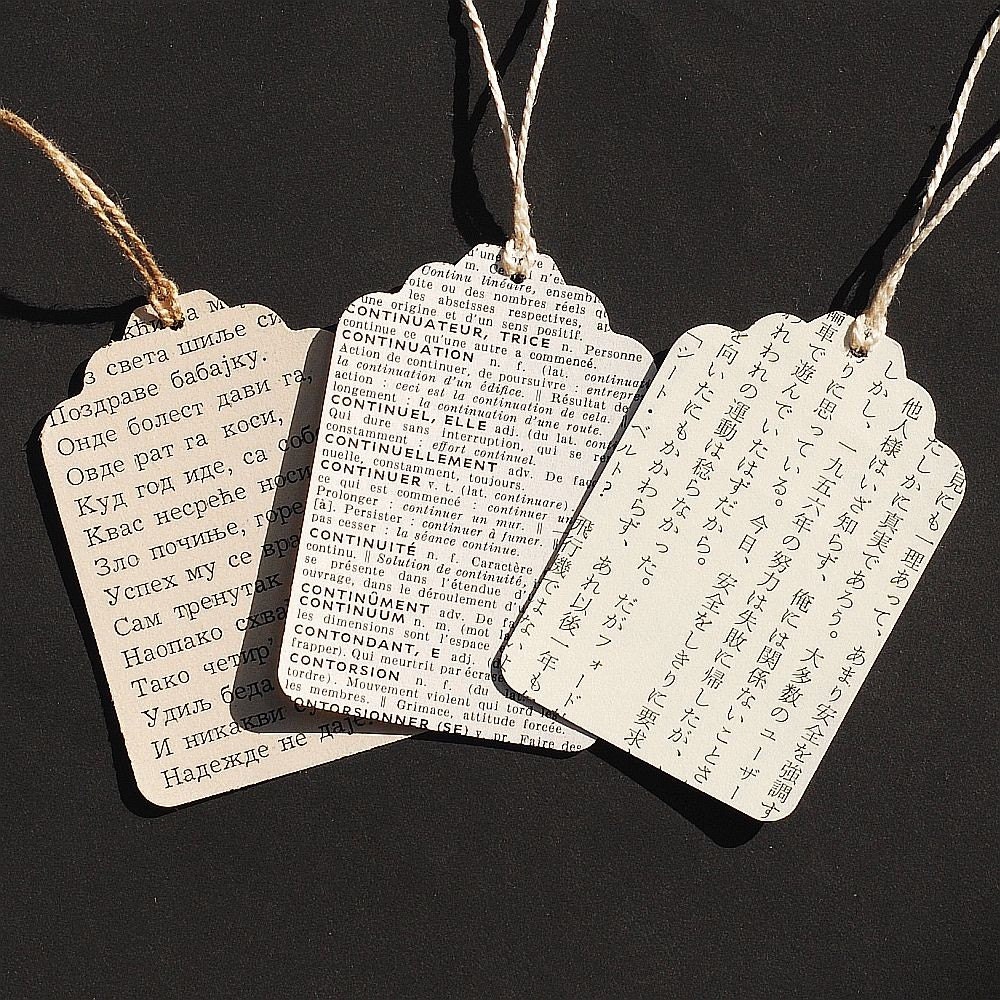 з света шиље си
Поздраве бабајку.
Онде болест дави га,
Овде рат га коси,
Куд год иде, са соб
Квас несреће носи
Зло почиње, горе
Успех му се вра
Сам тренутак
Наопако схва
Тако четир'
Удиљ беда
И никакви
Надежде не даје
Continu linéaire, ensemb
oite ou des nombres réels q
les abscisses respectives, ap
une origine et d'un sens positif.
CONTINUATEUR, TRICE n. Personne
continue ce qu'une autre a commencé.
CONTINUATION n. f. (lat. continuat
Action de continuer, de poursuivre : entrepren
la continuation d'un édifice. ‖ Résultat de
action : ceci est la continuation de cela.
longement : la continuation d'une route.
CONTINUEL, ELLE adj. (du lat. cont
Qui dure sans interruption, qui se re
constamment : effort continuel.
CONTINUELLEMENT adv. De faç
nuelle, constamment, toujours.
CONTINUER v. t. (lat. continuare).
ce qui est commencé : continuer un
Prolonger : continuer un mur. ‖
[à]. Persister : continuer à fumer.
pas cesser : la séance continue.
CONTINUITÉ n. f. Caractère
continu. ‖ Solution de continuité,
se présente dans l'étendue d'
ouvrage, dans le déroulement d'
CONTINÛMENT adv. De f
CONTINUUM n. m. (mot l
les dimensions sont l'espace
CONTONDANT, E adj.
frapper). Qui meurtrit par écrase
CONTORSION n. f. (du lat.
tordre). Mouvement violent qui tord les
les membres. ‖ Grimace, attitude forcée.
ONTORSIONNER (SE) v. pr. Faire des
見にも一理あって、あまり安全を強調す
たしかに真実であろう。大多数のユーザー
他人様はいざ知らず、俺には関係ないことさ
しかし、一九五六年の努力は失敗に帰したが、
りに思っている。今日、安全をしきりに要求
輛車で遊んでいたはずだから。
れわれの運動は稔らなかった。だがフォード
を向いたにもかかわらず、あれ以後一年も
「シート・ベルト? 飛行機ではない